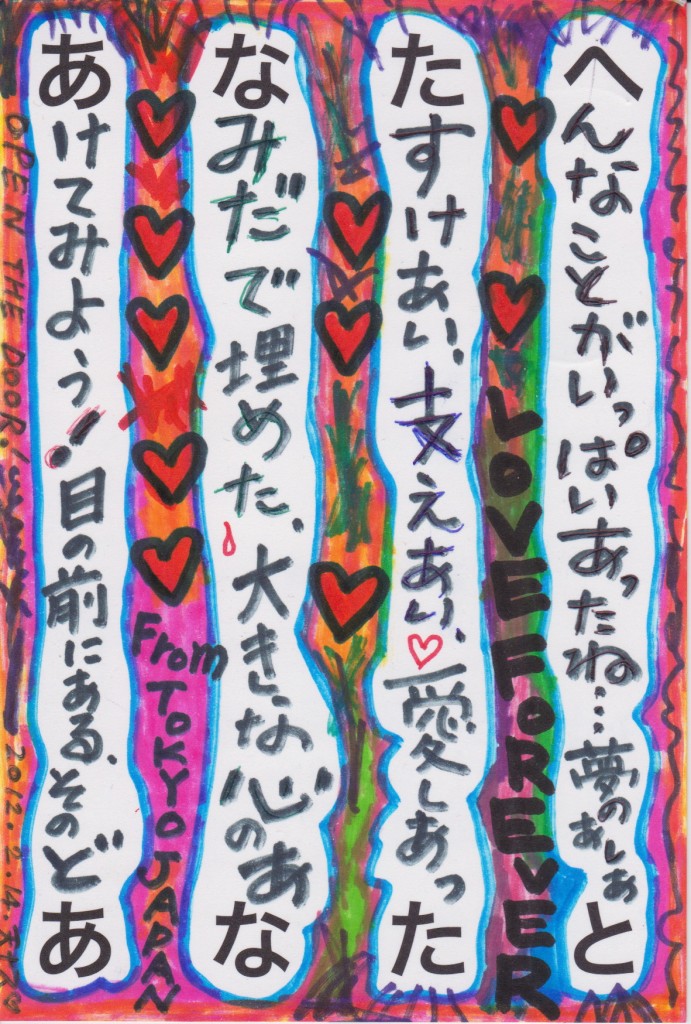 へんなことがいっぱいあったね…夢のあしあと
LOVE FOREVER
たすけあい、支えあい、愛しあった
なみだで埋めた、大きな心のあな
From TOKYO JAPAN
あけてみよう!目の前にある、そのどあ
OPEN THE DOOR. 2012.2.14.